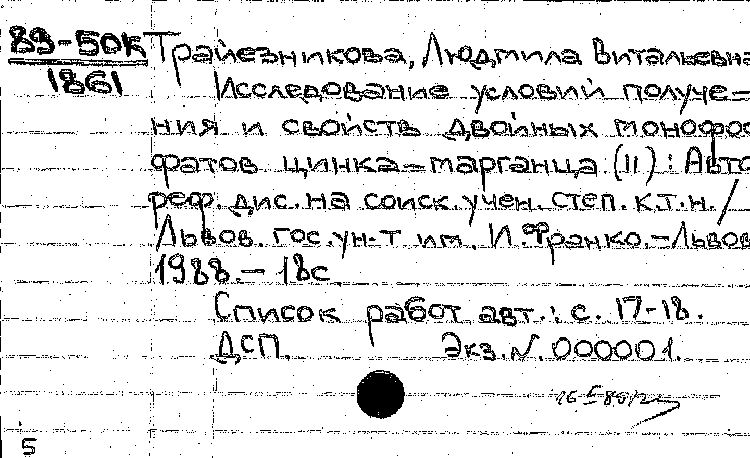 89-50к
1861
Трайезникова, Людмила Витальевна
Исследование условий получе=
ния и свойств двойных монофос
фатов цинка-марганца (II) : Авто
реф. дис. на соиск. учен. степ. к.т.н. /
Львов. гос. ун-т им. И. Франко. - Львов
1988. - 18с
Список работ авт.: с. 17-18.
ДСП. Экз. N. 000001.
5